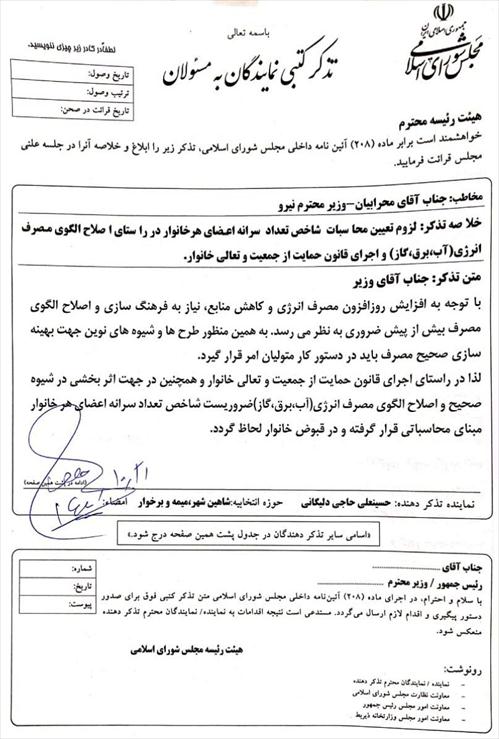 باسمه تعالی
جمهوری اسلامی ایران
مجلس شورای اسلامی
تذکر کتبی نمایندگان به مسئولان
لطفاً در کادر زیر چیزی ننویسید.
تاریخ وصول:
ترتیب وصول:
تاریخ قرائت در صحن:
هیئت رئیسه محترم
خواهشمند است برابر ماده (۲۰۸) آئین نامه داخلی مجلس شورای اسلامی، تذکر زیر را ابلاغ و خلاصه آنرا در جلسه علنی
مجلس قرائت فرمایید.
مخاطب: جناب آقای محرابیان-وزیر محترم نیرو
خلاصه تذکر: لزوم تعیین محاسبات شاخص تعداد سرانه اعضای هرخانوار در راستای اصلاح الگوی مصرف
انرژی(آب،برق،گاز) و اجرای قانون حمایت از جمعیت و تعالی خانوار.
متن تذکر: جناب آقای وزیر
با توجه به افزایش روزافزون مصرف انرژی و کاهش منابع، نیاز به فرهنگ سازی و اصلاح الگوی
مصرف بیش از پیش ضروری به نظر می رسد. به همین منظور طرح ها و شیوه های نوین جهت بهینه
سازی صحیح مصرف باید در دستور کار متولیان امر قرار گیرد.
لذا در راستای اجرای قانون حمایت از جمعیت و تعالی خانوار و همچنین در جهت اثر بخشی در شیوه
صحیح و اصلاح الگوی مصرف انرژی(آب،برق،گاز)ضروریست شاخص تعداد سرانه اعضای هر خانوار
مبنای محاسباتی قرار گرفته و در قبوض خانوار لحاظ گردد.
(ادامه در پشت همین صفحه)
نماینده تذکر دهنده: حسینعلی حاجی دلیگانی حوزه انتخابیه: شاهین شهر،میمه و برخوار امضاء:
«اسامی سایر تذکر دهندگان در جدول پشت همین صفحه درج شود.»
جناب آقای
رئیس جمهور / وزیر محترم
شماره:
تاریخ:
پیوست:
با سلام و احترام، در اجرای ماده (۲۰۸) آئین‌نامه داخلی مجلس شورای اسلامی متن تذکر کتبی فوق برای صدور
دستور پیگیری و اقدام لازم ارسال می‌گردد. مستدعی است نتیجه اقدامات به نماینده/ نمایندگان محترم تذکر دهنده
منعکس شود.
هیئت رئیسه مجلس شورای اسلامی
رونوشت:
- نماینده / نمایندگان محترم تذکر دهنده
- معاونت نظارت مجلس شورای اسلامی
- معاونت امور مجلس رئیس جمهور
- معاونت امور مجلس وزارتخانه ذیربط